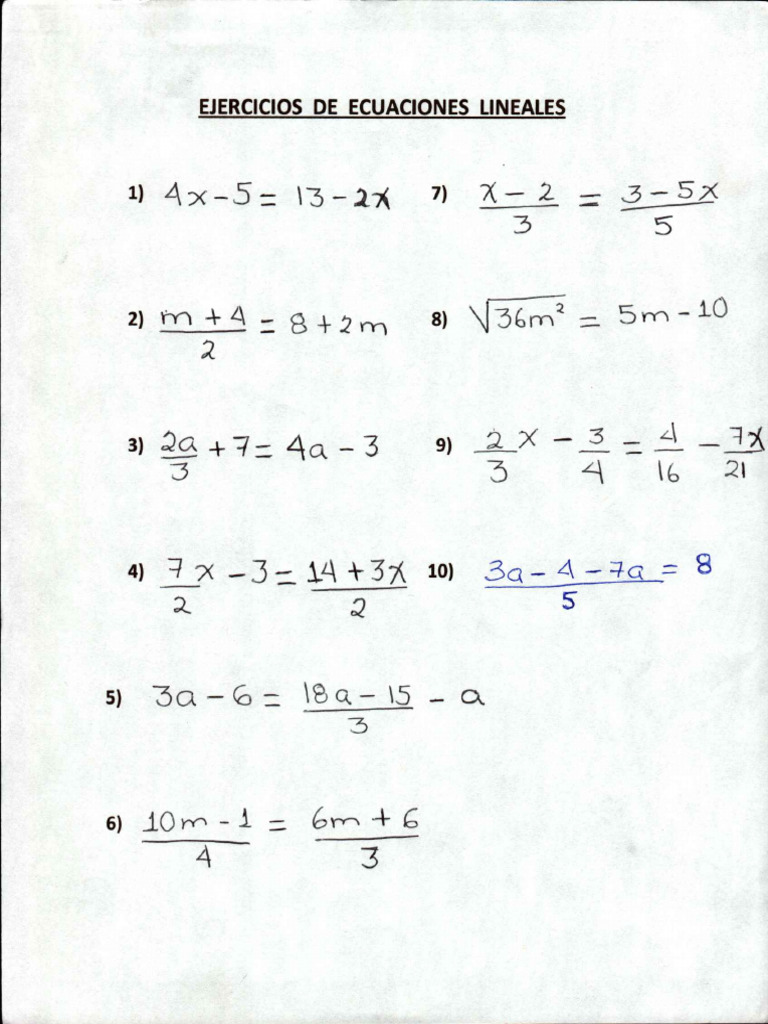 EJERCICIOS DE ECUACIONES LINEALES
1) 4x - 5 = 13 - 2x
2) m + 4 / 2 = 8 + 2m
3) 2a / 3 + 7 = 4a - 3
4) 7 / 2 x - 3 = 14 + 3x / 2
5) 3a - 6 = 18a - 15 / 3 - a
6) 10m - 1 / 4 = 6m + 6 / 3
7) x - 2 / 3 = 3 - 5x / 5
8) √36m² = 5m - 10
9) 2 / 3 x - 3 / 4 = 4 / 16 - 7x / 21
10) 3a - 4 - 7a / 5 = 8